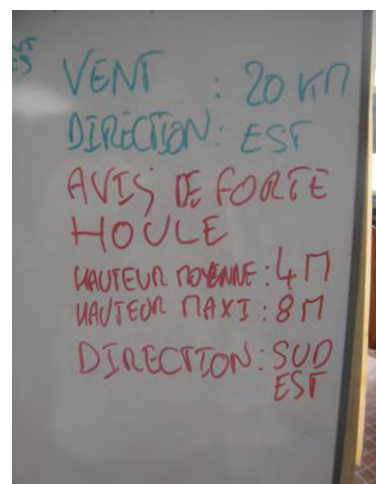 VENT : 20 KM
DIRECTION : EST
AVIS DE FORTE
HOULE
HAUTEUR MOYENNE : 4 M
HAUTEUR MAXI : 8 M
DIRECTION : SUD
EST